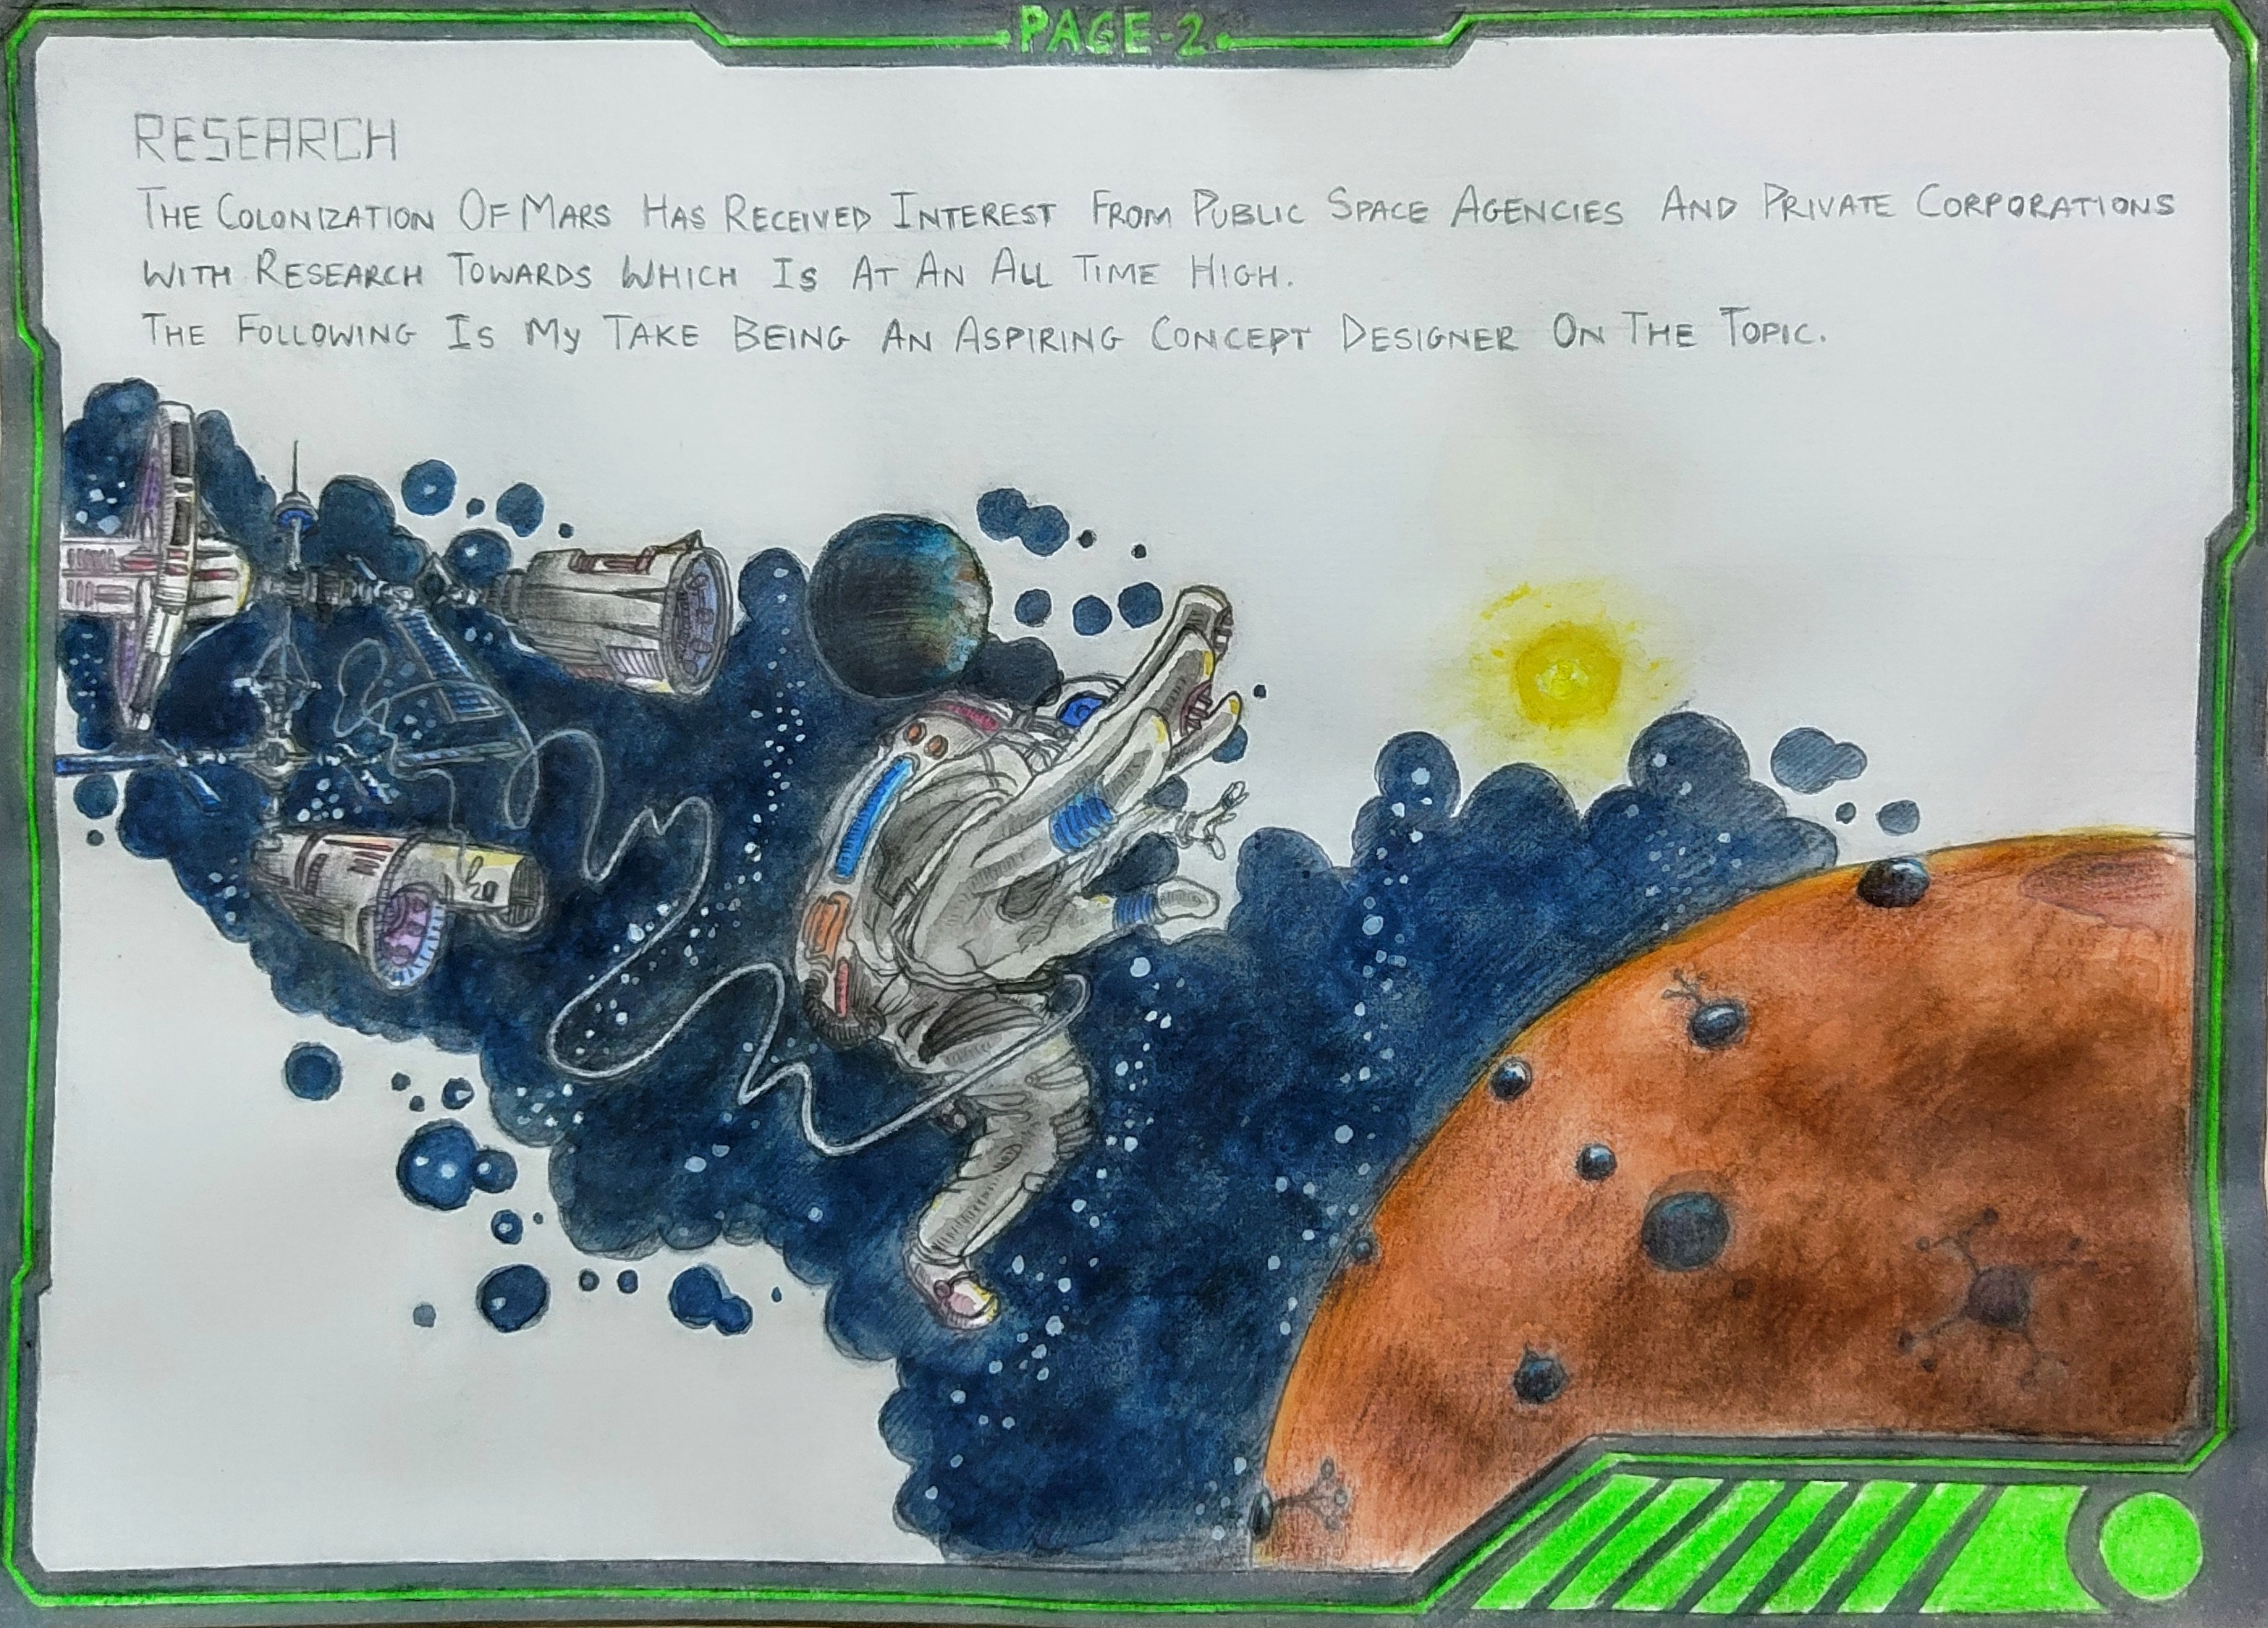 PAGE-2
RESEARCH
THE COLONIZATION OF MARS HAS RECEIVED INTEREST FROM PUBLIC SPACE AGENCIES AND PRIVATE CORPORATIONS
WITH RESEARCH TOWARDS WHICH IS AT AN ALL TIME HIGH.
THE FOLLOWING IS MY TAKE BEING AN ASPIRING CONCEPT DESIGNER ON THE TOPIC.